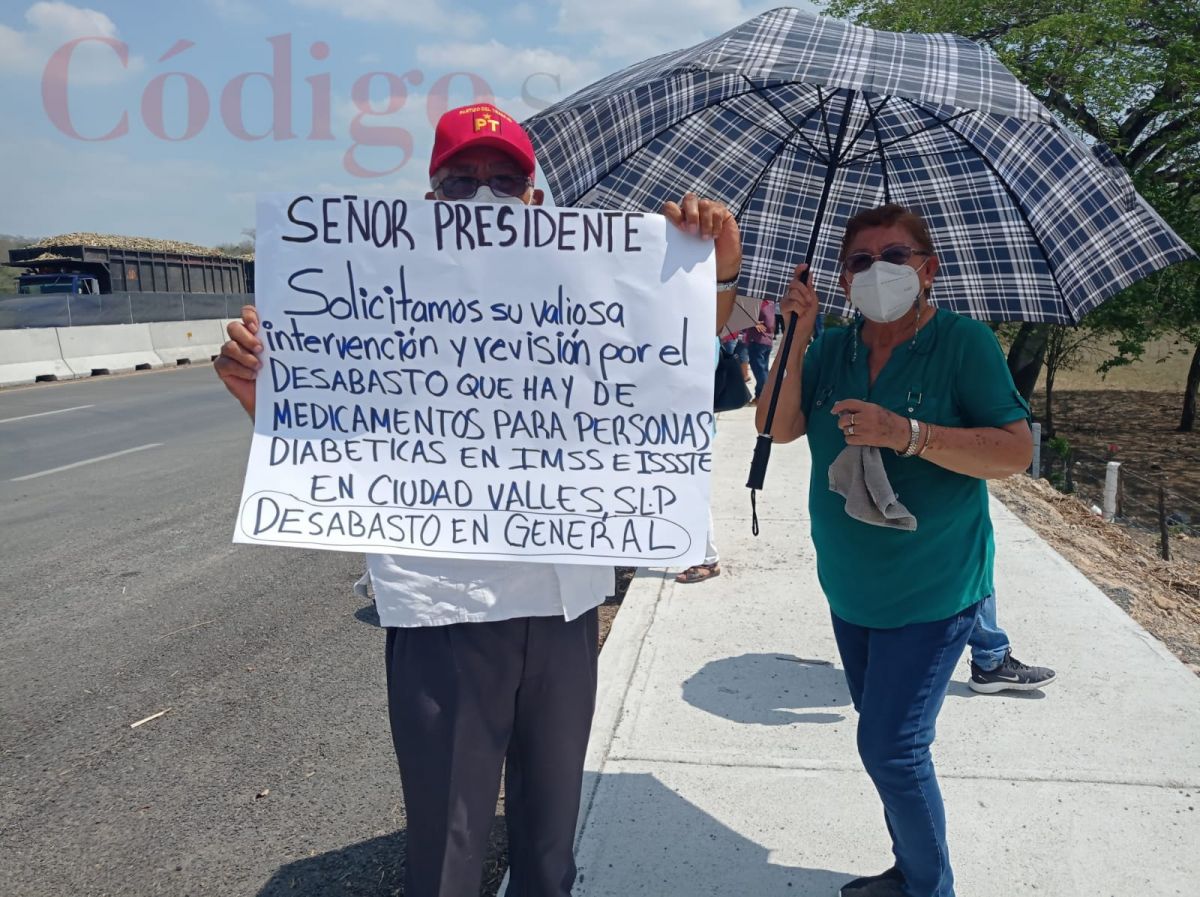 Códigos
PARTIDO DEL TRABAJO
PT
SEÑOR PRESIDENTE
Solicitamos su valiosa
intervención y revisión por el
DESABASTO QUE HAY DE
MEDICAMENTOS PARA PERSONAS
DIABETICAS EN IMSS E ISSSTE
EN CIUDAD VALLES, S.L.P
DESABASTO EN GENERAL